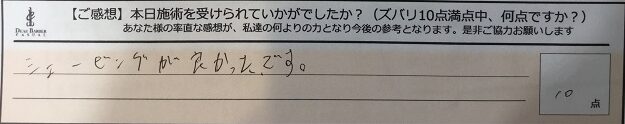 【ご感想】本日施術を受けられていかがでしたか？（ズバリ10点満点中、何点ですか？）
あなた様の率直な感想が、私達の何よりの力となり今後の参考となります。是非ご協力お願いします
DEAR BARBER
CASUAL
シェービングが良かったです。
10
点